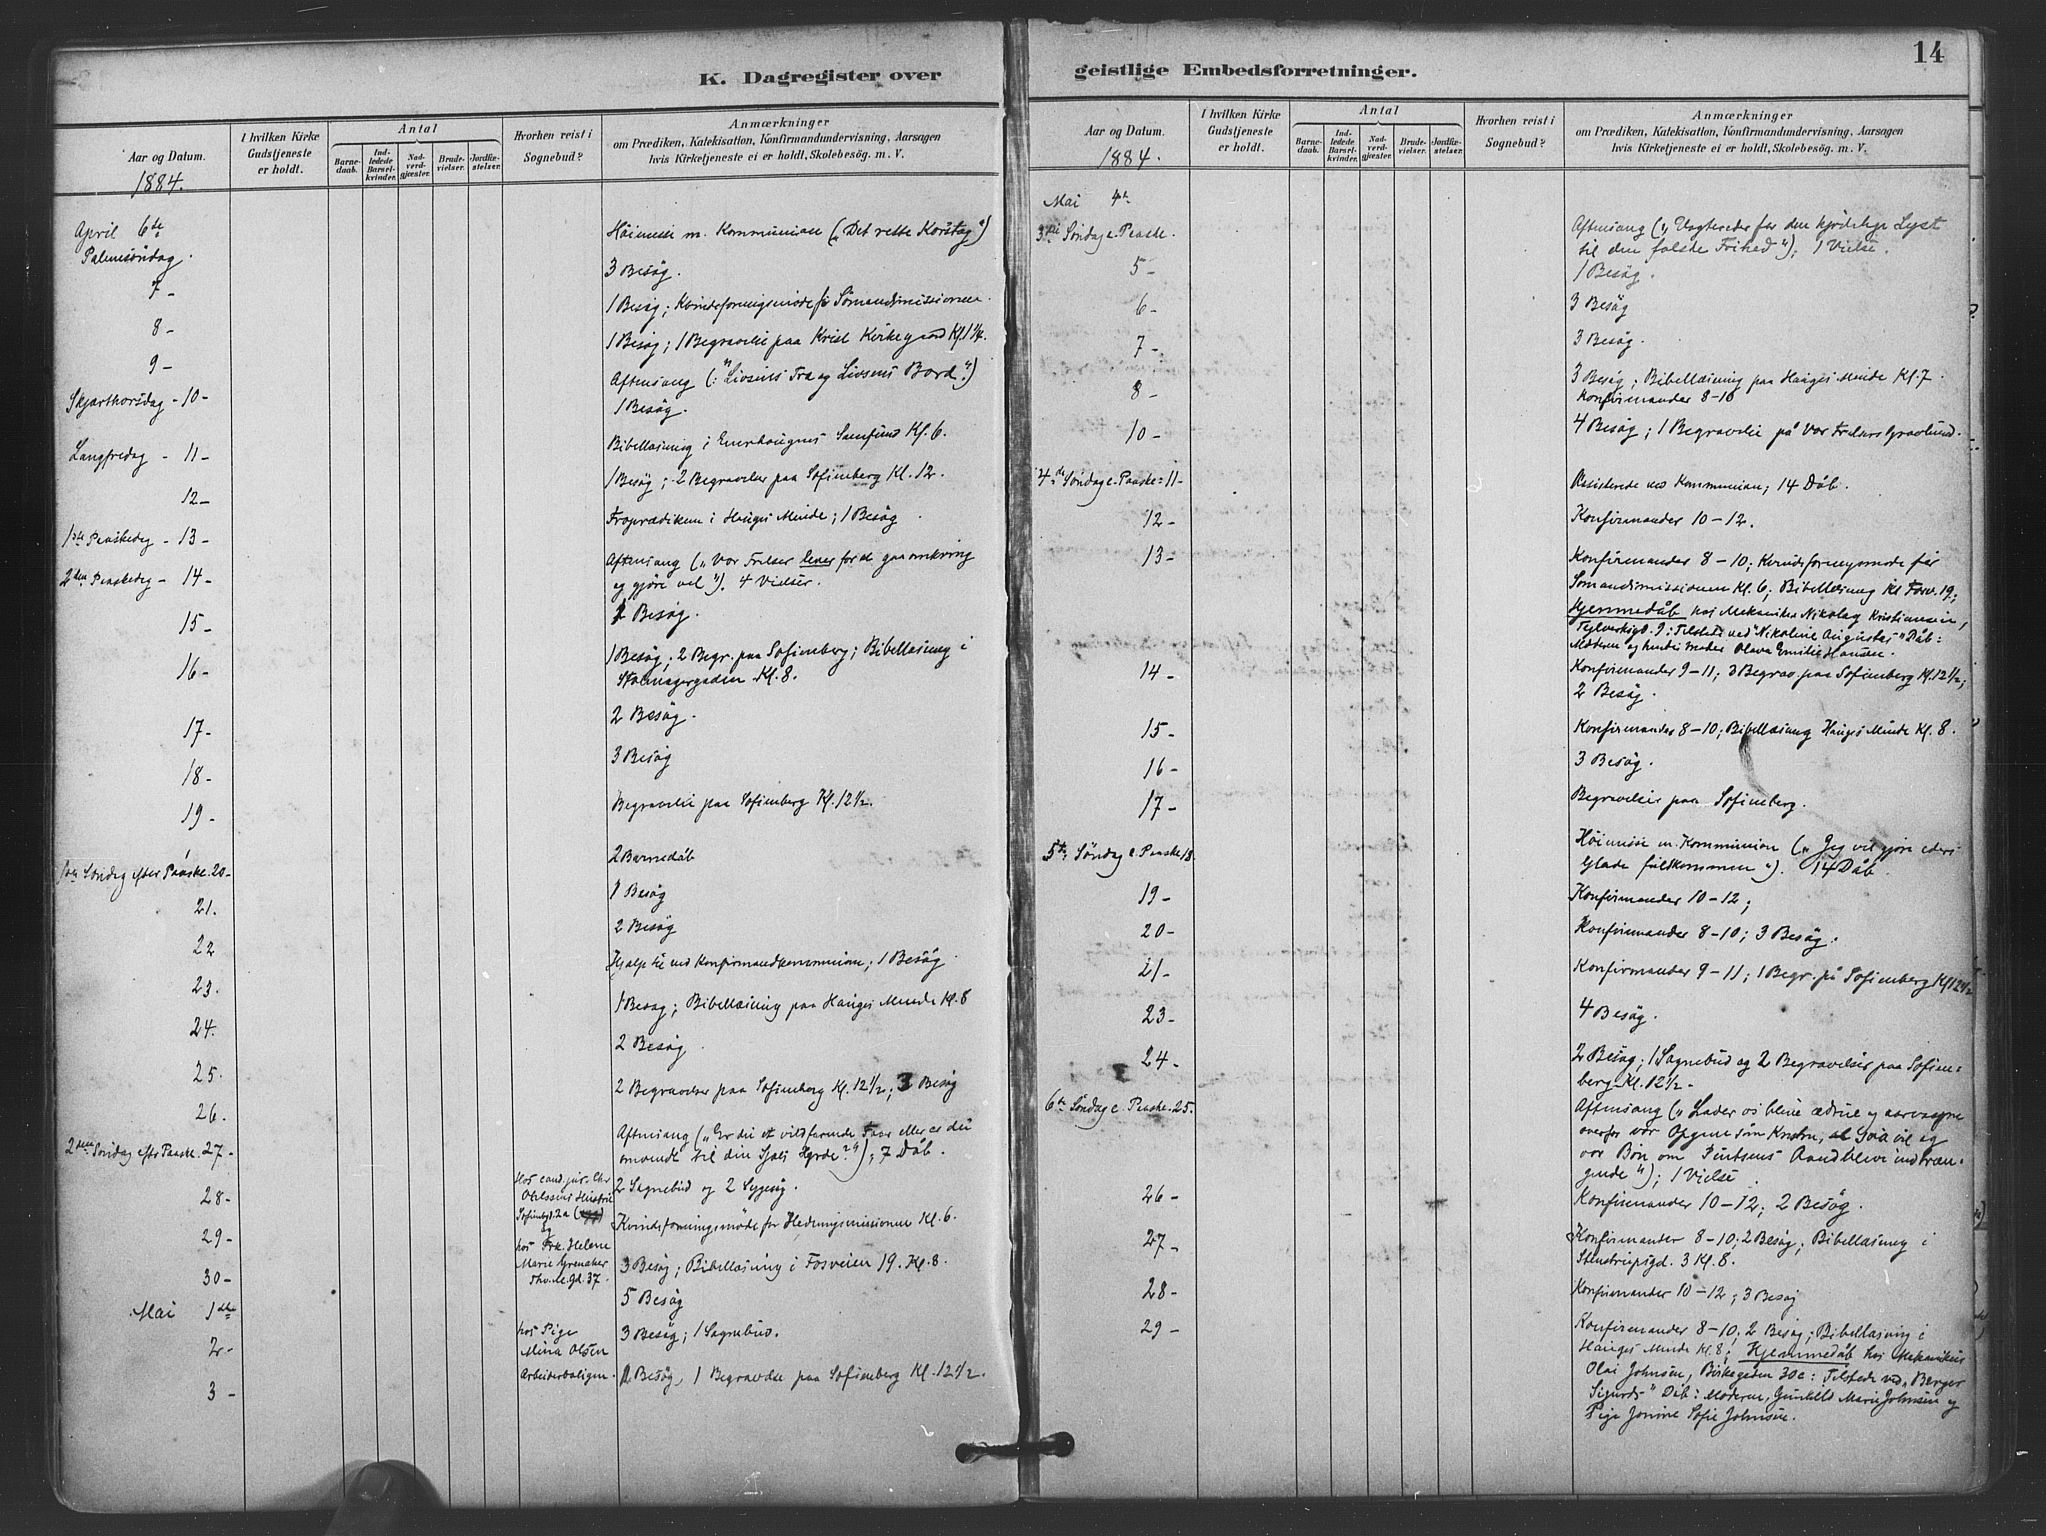 K. Dagregister over
Aar og Datum.
I hvilken Kirke Gudstjeneste er holdt.
Antal
Barne-daab.
Ind-ledede Barsel-kvinder.
Nad-verd-gjester.
Brude-vielser.
Jordfæ-stelser.
Hvorhen reist i Sognebud?
Anmærkninger
om Prædiken, Katekisation, Konfirmandundervisning, Aarsagen
hvis Kirketjeneste ei er holdt, Skolebesög. m. V.
1884.
April 6te
Palmesöndag.
Höimesse m. Kommunion („Det rette Korstog")
3 Besög.
7-
1 Besög; Kvindeforeningsmöde for Sömandsmissionen.
8-
1 Besög; 1 Begravelse paa Krist Kirkegaard Kl. 1 1/2.
9-
Aftensang (: "Livsens Træ og Livsens Bord".)
Skjærthorsdag - 10-
1 Besög.
Bibellæsning i Enerhaugens Samfund Kl. 6.
Langfredag - 11-
1 Besög; 2 Begravelser paa Sofienberg Kl. 12.
12-
Froprædiken i Hauges Minde; 1 Besög
1ste Paaskedag - 13-
Aftensang („Vor Frelser lever for at gaa omkring
2den Paaskedag - 14-
og gjöre vel"). 4 Vielser.
2 Besög.
15-
1 Besög; 2 Begr. paa Sofienberg; Bibellæsning i
16-
Kl. 8.
2 Besög.
17-
3 Besög
18-
Begravelse paa Sofienberg Kl. 12 1/2.
19-
2 Barnedåb
1ste Söndag efter Paaske. 20-
1 Besög
21.
2 Besög
22
Hjalp til ved Konfirmandkommunion; 1 Besög.
23.
1 Besøg; Bibellæsning paa Hauges Minde Kl. 8
24.
2 Besög
25.
2 Begravelser paa Sofienberg Kl. 12 1/2; 3 Besög
26.
Aftensang („Er du et vildfarende Faar eller er du
2den Söndag efter Paaske. 27-
omvendt til din Sjæls Hyrde?"); 7 Dåb.
Hos cand. jur. Chr
Ohlssens Hustru
2 Sognebud og 2 Sygesög.
28-
Sofienbgt. 2a
og
Kvindeforeningsmöde for Hedningmissionen Kl. 6.
29-
hos Frk. Helene
Marie Grenaker
Thv.M.Gd. 37.
3 Besög; Bibellæsning i Fosveien 19. Kl. 8.
30-
5 Besög
Mai 1ste
hos Pige
Mina Olsen
3 Besög; 1 Sognebud.
2-
Arbeiderboligen.
2 Besög, 1 Begravelse paa Sofienberg Kl. 12 1/2.
3-
geistlige Embedsforretninger.
14
Aar og Datum.
I hvilken Kirke Gudstjeneste er holdt.
Antal
Barne-daab.
Ind-ledede Barsel-kvinder.
Nad-verd-gjester.
Brude-vielser.
Jordfæ-stelser.
Hvorhen reist i Sognebud?
Anmærkninger
om Prædiken, Katekisation, Konfirmandundervisning, Aarsagen
hvis Kirketjeneste ei er holdt, Skolebesög. m. V.
1884.
Mai 4de
3die Söndag e. Paaske.
Aftensang („Vogter eder for den kjödelige Lyst
til den falske Frihed"); 1 Vielse.
5-
1 Besög.
6-
3 Besög
7-
3 Besög.
8-
3 Besög; Bibellæsning paa Hauges Minde Kl. 7
Konfirmander 8-10
10-
4 Besög; 1 Begravelse på Vor Frelsers Gravlund.
4de Söndag e. Paaske - 11-
Assisterede ved Kommunion; 14 Dåb.
12-
Konfirmander 10-12.
13-
Konfirmander 8-10; Kvindeforeningsmöde for
Sömandsmissionen Kl. 6; Bibellæsning 19;
Hjemmedåb hos Mekaniker Nikolay Kristiansen,
Teglverksgd. 9: Tilstede ved "Nikoline Augustas" Dåb:
Moderen og hendes Moder Olava Emilie Hansen.
14-
Konfirmander 9-11; 3 Begrav. paa Sofienberg Kl. 12 1/2;
2 Besög.
15-
Konfirmander 8-10; Bibellæsning Hauges Minde Kl. 8.
16-
3 Besög.
17-
Begravelser paa Sofienberg.
5te Söndag e. Paaske 18.
Höimesse m. Kommunion („Jeg vil gjöre eders
Glæde fuldkommen"). 14 Dåb.
19-
Konfirmander 10-12;
20-
Konfirmander 8-10; 3 Besög.
21-
Konfirmander 9-11; 1 Begr. på Sofienberg Kl 12 1/2
23-
4 Besög.
24-
2 Besög; 1 Sognebud og 2 Begravelser paa Sofien-
berg Kl. 12 1/2.
6te Söndag e. Paaske. 25.
Aftensang („Lader os blive ædrue og aarvaagne
overfor vor Opgave som Kristne, at
vor Bön om Pintsens Aand blive indtræn-
gende"); 1 Vielse.
26-
Konfirmander 10-12; 2 Besög.
27-
Konfirmander 8-10; 2 Besög; Bibellæsning i
Stenstrupsgd. 3 Kl. 8.
28-
Konfirmander 10-12; 3 Besög
29-
Konfirmander 8-10; 2 Besög; Bibellæsning i
Hauges Minde Kl. 8; Hjemmedåb hos Mekanikus
Olai Johnsen, Birkegaden 30c: Tilstede ved „Berger
Sigurds" Dåb: Moderen, Gunhild Marie Johnsen og
Pige Jonine Sofie Johnsen.